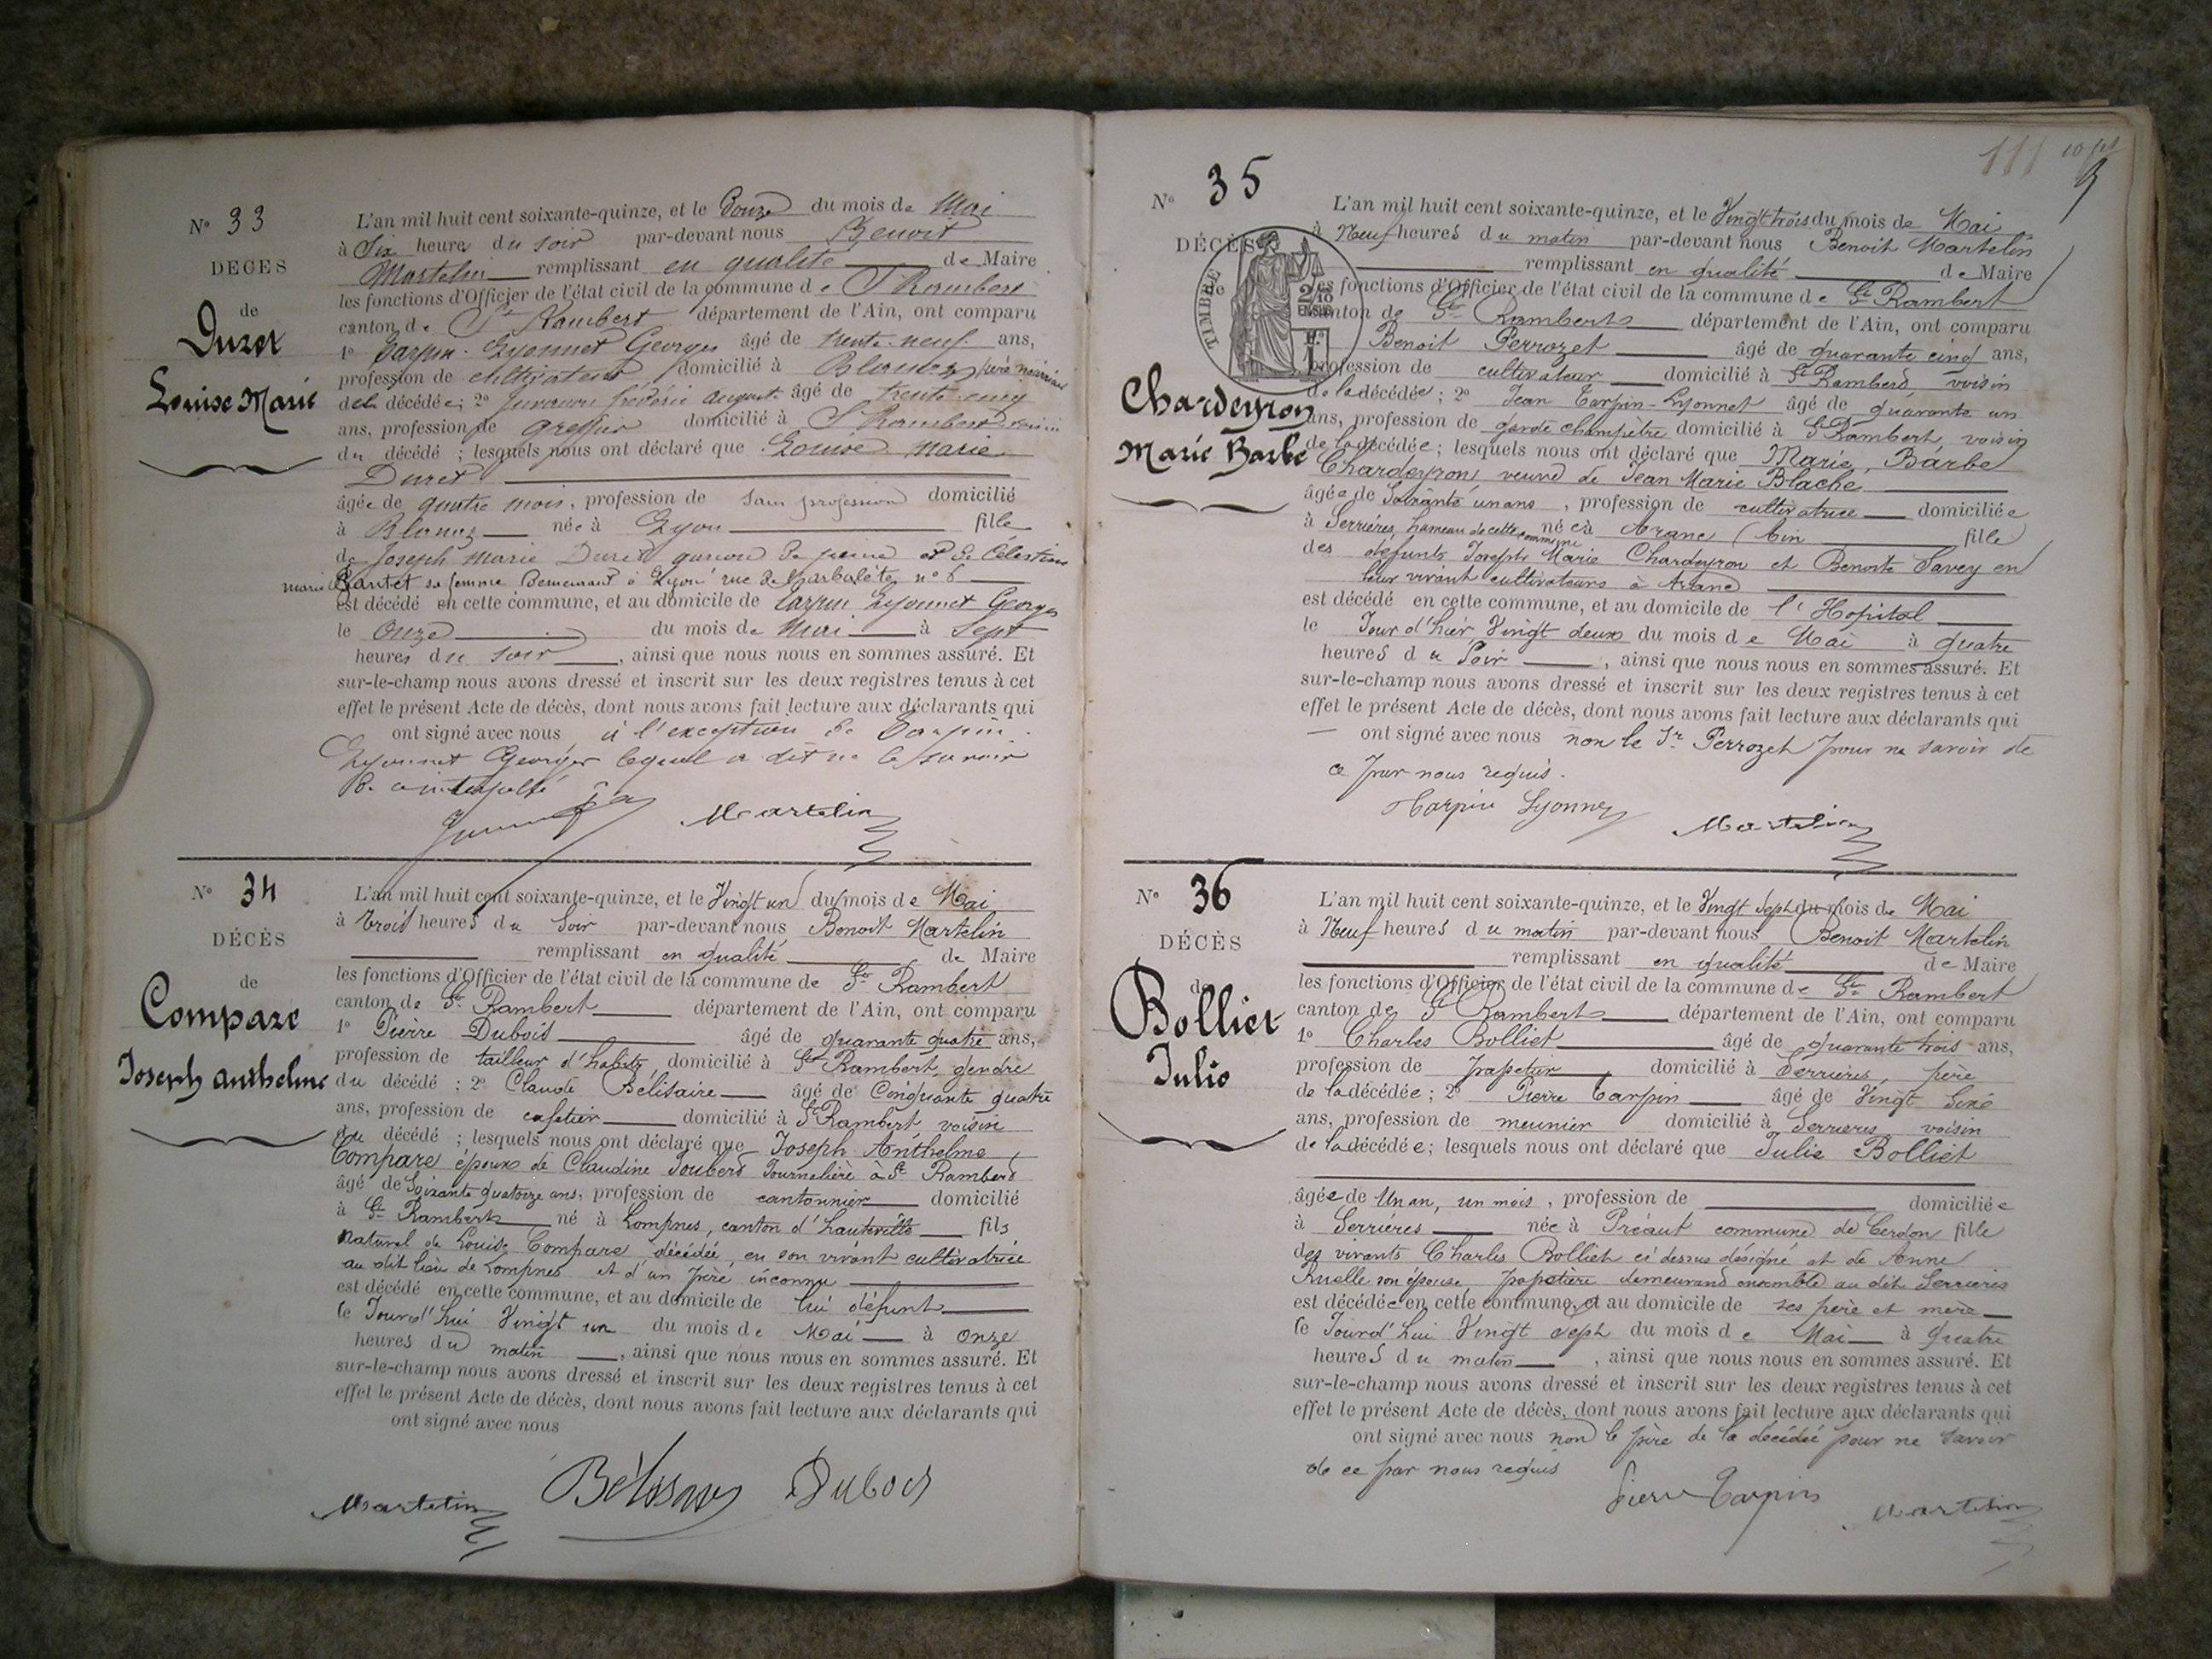 N° 33
DÉCÈS
de
Duret
Louise Marie
L'an mil huit cent soixante-quinze, et le Douze du mois de Mai
à Six heures du soir par-devant nous Benoit
Martelin remplissant en qualité de Maire
les fonctions d'Officier de l'état civil de la commune de St Rambert
canton de St Rambert département de l'Ain, ont comparu
1° Carpin-Lyonnet Georges âgé de trente-neuf ans,
profession de cultivateur domicilié à Blanaz père nourricier
de la décédée; 2° frédéric august âgé de trente-cinq
ans, profession de greffier domicilié à St Rambert voisin
du décédé ; lesquels nous ont déclaré que Louise Marie
Duret
âgée de quatre mois, profession de sans profession domicilié
à Blanaz née à Lyon fille
de Joseph Marie Duret garcon de peine et de Célestine
marie Pantet sa femme demeurant à Lyon rue de Larbalète n° 6
est décédé en cette commune, et au domicile de Carpin Lyonnet Georges
le Onze du mois de Mai à Sept
heures du soir , ainsi que nous nous en sommes assuré. Et
sur-le-champ nous avons dressé et inscrit sur les deux registres tenus à cet
effet le présent Acte de décès, dont nous avons fait lecture aux déclarants qui
ont signé avec nous à l'exception de Carpin
Lyonnet Georges lequel a dit ne le savoir
de ce interpellé
Martelin
N° 34
DÉCÈS
de
Compare
Joseph Anthelme
L'an mil huit cent soixante-quinze, et le Vingt un du mois de Mai
à trois heures du Soir par-devant nous Benoit Martelin
remplissant en qualité de Maire
les fonctions d'Officier de l'état civil de la commune de St Rambert
canton de St Rambert département de l'Ain, ont comparu
1° Pierre Dubois âgé de quarante quatre ans,
profession de tailleur d'habits domicilié à St Rambert, gendre
du décédé ; 2° Claude Bélisaire âgé de Cinquante quatre
ans, profession de cafetier domicilié à St Rambert voisin
du décédé ; lesquels nous ont déclaré que Joseph Anthelme
Compare époux de Claudine Joubert Journalière à St Rambert
âgé de Soixante quatorze ans, profession de cantonnier domicilié
à St Rambert né à Lompnes, canton d'hauteville fils
naturel de Louise Compare décédée, en son vivant cultivatrice
au dit lieu de Lompnes et d'un père inconnu
est décédé en cette commune, et au domicile de lui défunt
le Jourd'hui Vingt un du mois de Mai à onze
heures du matin , ainsi que nous nous en sommes assuré. Et
sur-le-champ nous avons dressé et inscrit sur les deux registres tenus à cet
effet le présent Acte de décès, dont nous avons fait lecture aux déclarants qui
ont signé avec nous
Martelin Dubois
111
9
N° 35
DÉCÈS
de
TIMBRE
Chardeyron
Marie Barbe
L'an mil huit cent soixante-quinze, et le Vingt trois du mois de Mai
à Neuf heures du matin par-devant nous Benoit Martelin
remplissant en qualité de Maire
les fonctions d'Officier de l'état civil de la commune de St Rambert
canton de St Rambert département de l'Ain, ont comparu
Benoit Perrozet âgé de quarante cinq ans,
profession de cultivateur domicilié à St Rambert voisin
de la décédée ; 2° Jean Carpin-Lyonnet âgé de quarante un
ans, profession de garde champêtre domicilié à St Rambert, voisin
de la décédée ; lesquels nous ont déclaré que Marie, Barbe
Chardeyron, veuve de Jean Marie Blache
âgée de Soixante un ans , profession de cultivatrice domiciliée
à Serrières, hameau de cette commune née à Arane (Ain fille
des défunts Joseph Marie Chardeyron et Benoite Savey en
leur vivant cultivateurs à Arane
est décédé en cette commune, et au domicile de l'Hopital
le Jour d'hier Vingt deux du mois de Mai à quatre
heures du Soir , ainsi que nous nous en sommes assuré. Et
sur-le-champ nous avons dressé et inscrit sur les deux registres tenus à cet
effet le présent Acte de décès, dont nous avons fait lecture aux déclarants qui
ont signé avec nous non le Sr Perrozet pour ne savoir de
ce par nous requis.
Carpin Lyonnet Martelin
N° 36
DÉCÈS
de
Bolliet
Julie
L'an mil huit cent soixante-quinze, et le Vingt Sept du mois de Mai
à Neuf heures du matin par-devant nous Benoit Martelin
remplissant en qualité de Maire
les fonctions d'Officier de l'état civil de la commune de St Rambert
canton de St Rambert département de l'Ain, ont comparu
1° Charles Bolliet âgé de quarante trois ans,
profession de papetier domicilié à Serrières, père
de la décédée ; 2° Pierre Carpin âgé de Vingt Sixe
ans, profession de meunier domicilié à Serrières voisin
de la décédée ; lesquels nous ont déclaré que Julie Bolliet
âgée de Un an, un mois , profession de domiciliée
à Serrières née à Préaut commune de Cerdon fille
des vivants Charles Bolliet ci dessus désigné et de Anne
Ruelle son épouse, papetière demeurand ensemble au dit Serrières
est décédée en cette commune, et au domicile de ses père et mère
le Jourd'hui Vingt Sept du mois de Mai à quatre
heures du matin , ainsi que nous nous en sommes assuré. Et
sur-le-champ nous avons dressé et inscrit sur les deux registres tenus à cet
effet le présent Acte de décès, dont nous avons fait lecture aux déclarants qui
ont signé avec nous non le père de la décédée pour ne savoir
de ce par nous requis
Pierre Carpin Martelin